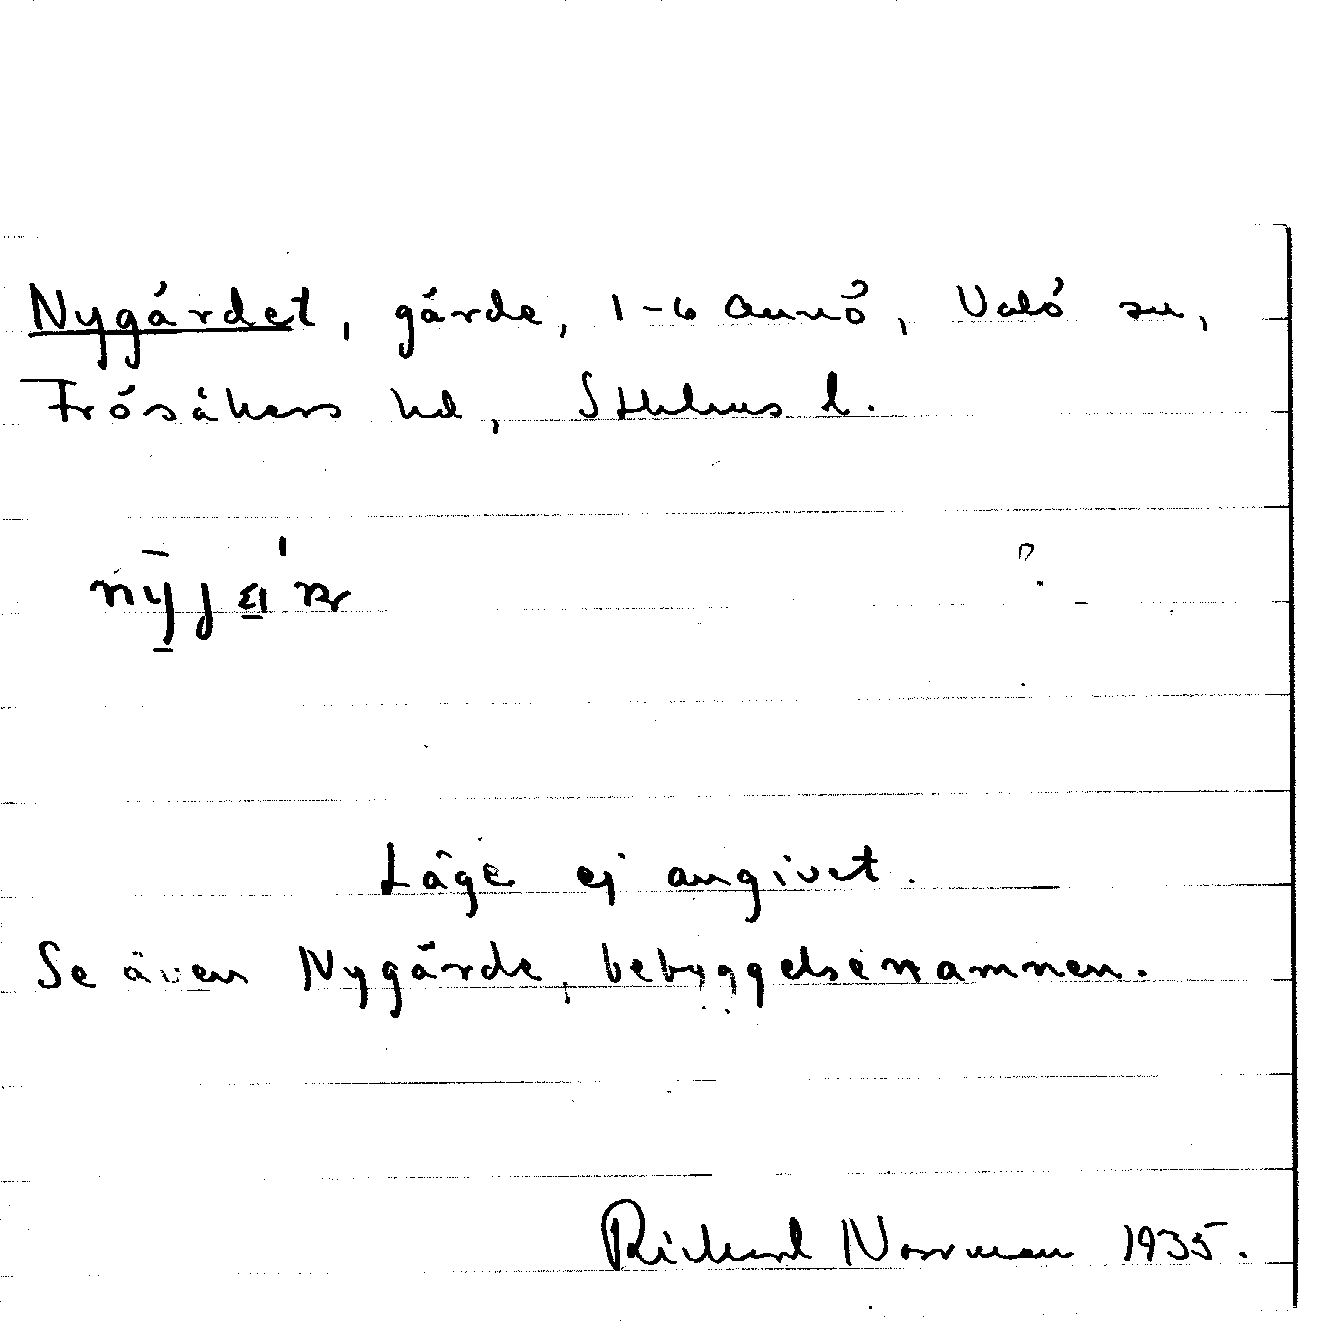 Nygärdet, gärde, 1-6 Annö, Valö sn,
Frösåkers hd, Sthlms l.
?
Läge ej angivet.
Se även Nygärde, bebyggelsenamnen.
Richard Norrman 1935.